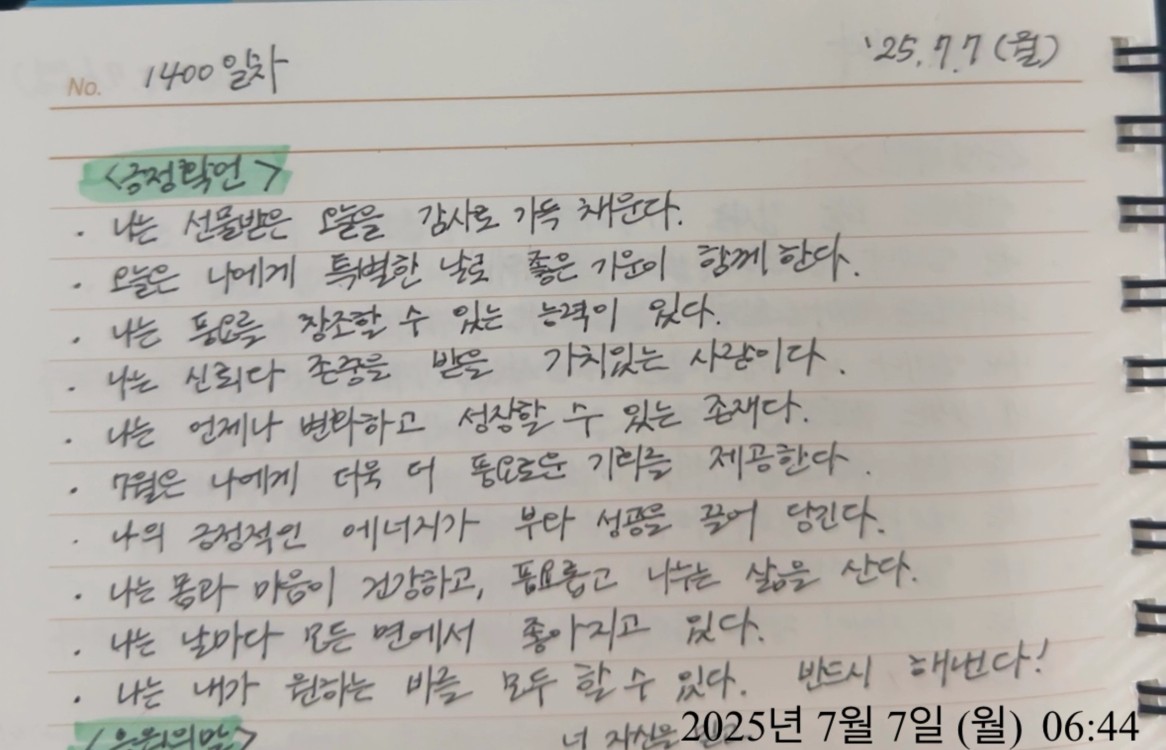 No. 1400일차 '25.7.7(월)
<긍정확언>
· 나는 선물받은 오늘을 감사로 가득 채운다.
· 오늘은 나에게 특별한 날로 좋은 기운이 함께 한다.
· 나는 풍요를 창조할 수 있는 능력이 있다.
· 나는 신뢰다 존중을 받을 가치있는 사람이다.
· 나는 언제나 변화하고 성장할 수 있는 존재다.
· 7월은 나에게 더욱 더 풍요로운 기회를 제공한다.
· 나의 긍정적인 에너지가 부와 성공을 끌어 당긴다.
· 나는 몸과 마음이 건강하고, 풍요롭고 나누는 삶을 산다.
· 나는 날마다 모든 면에서 좋아지고 있다.
· 나는 내가 원하는 바를 모두 할 수 있다. 반드시 해낸다!
<응원의말> 너 자신을
2025년 7월 7일 (월) 06:44